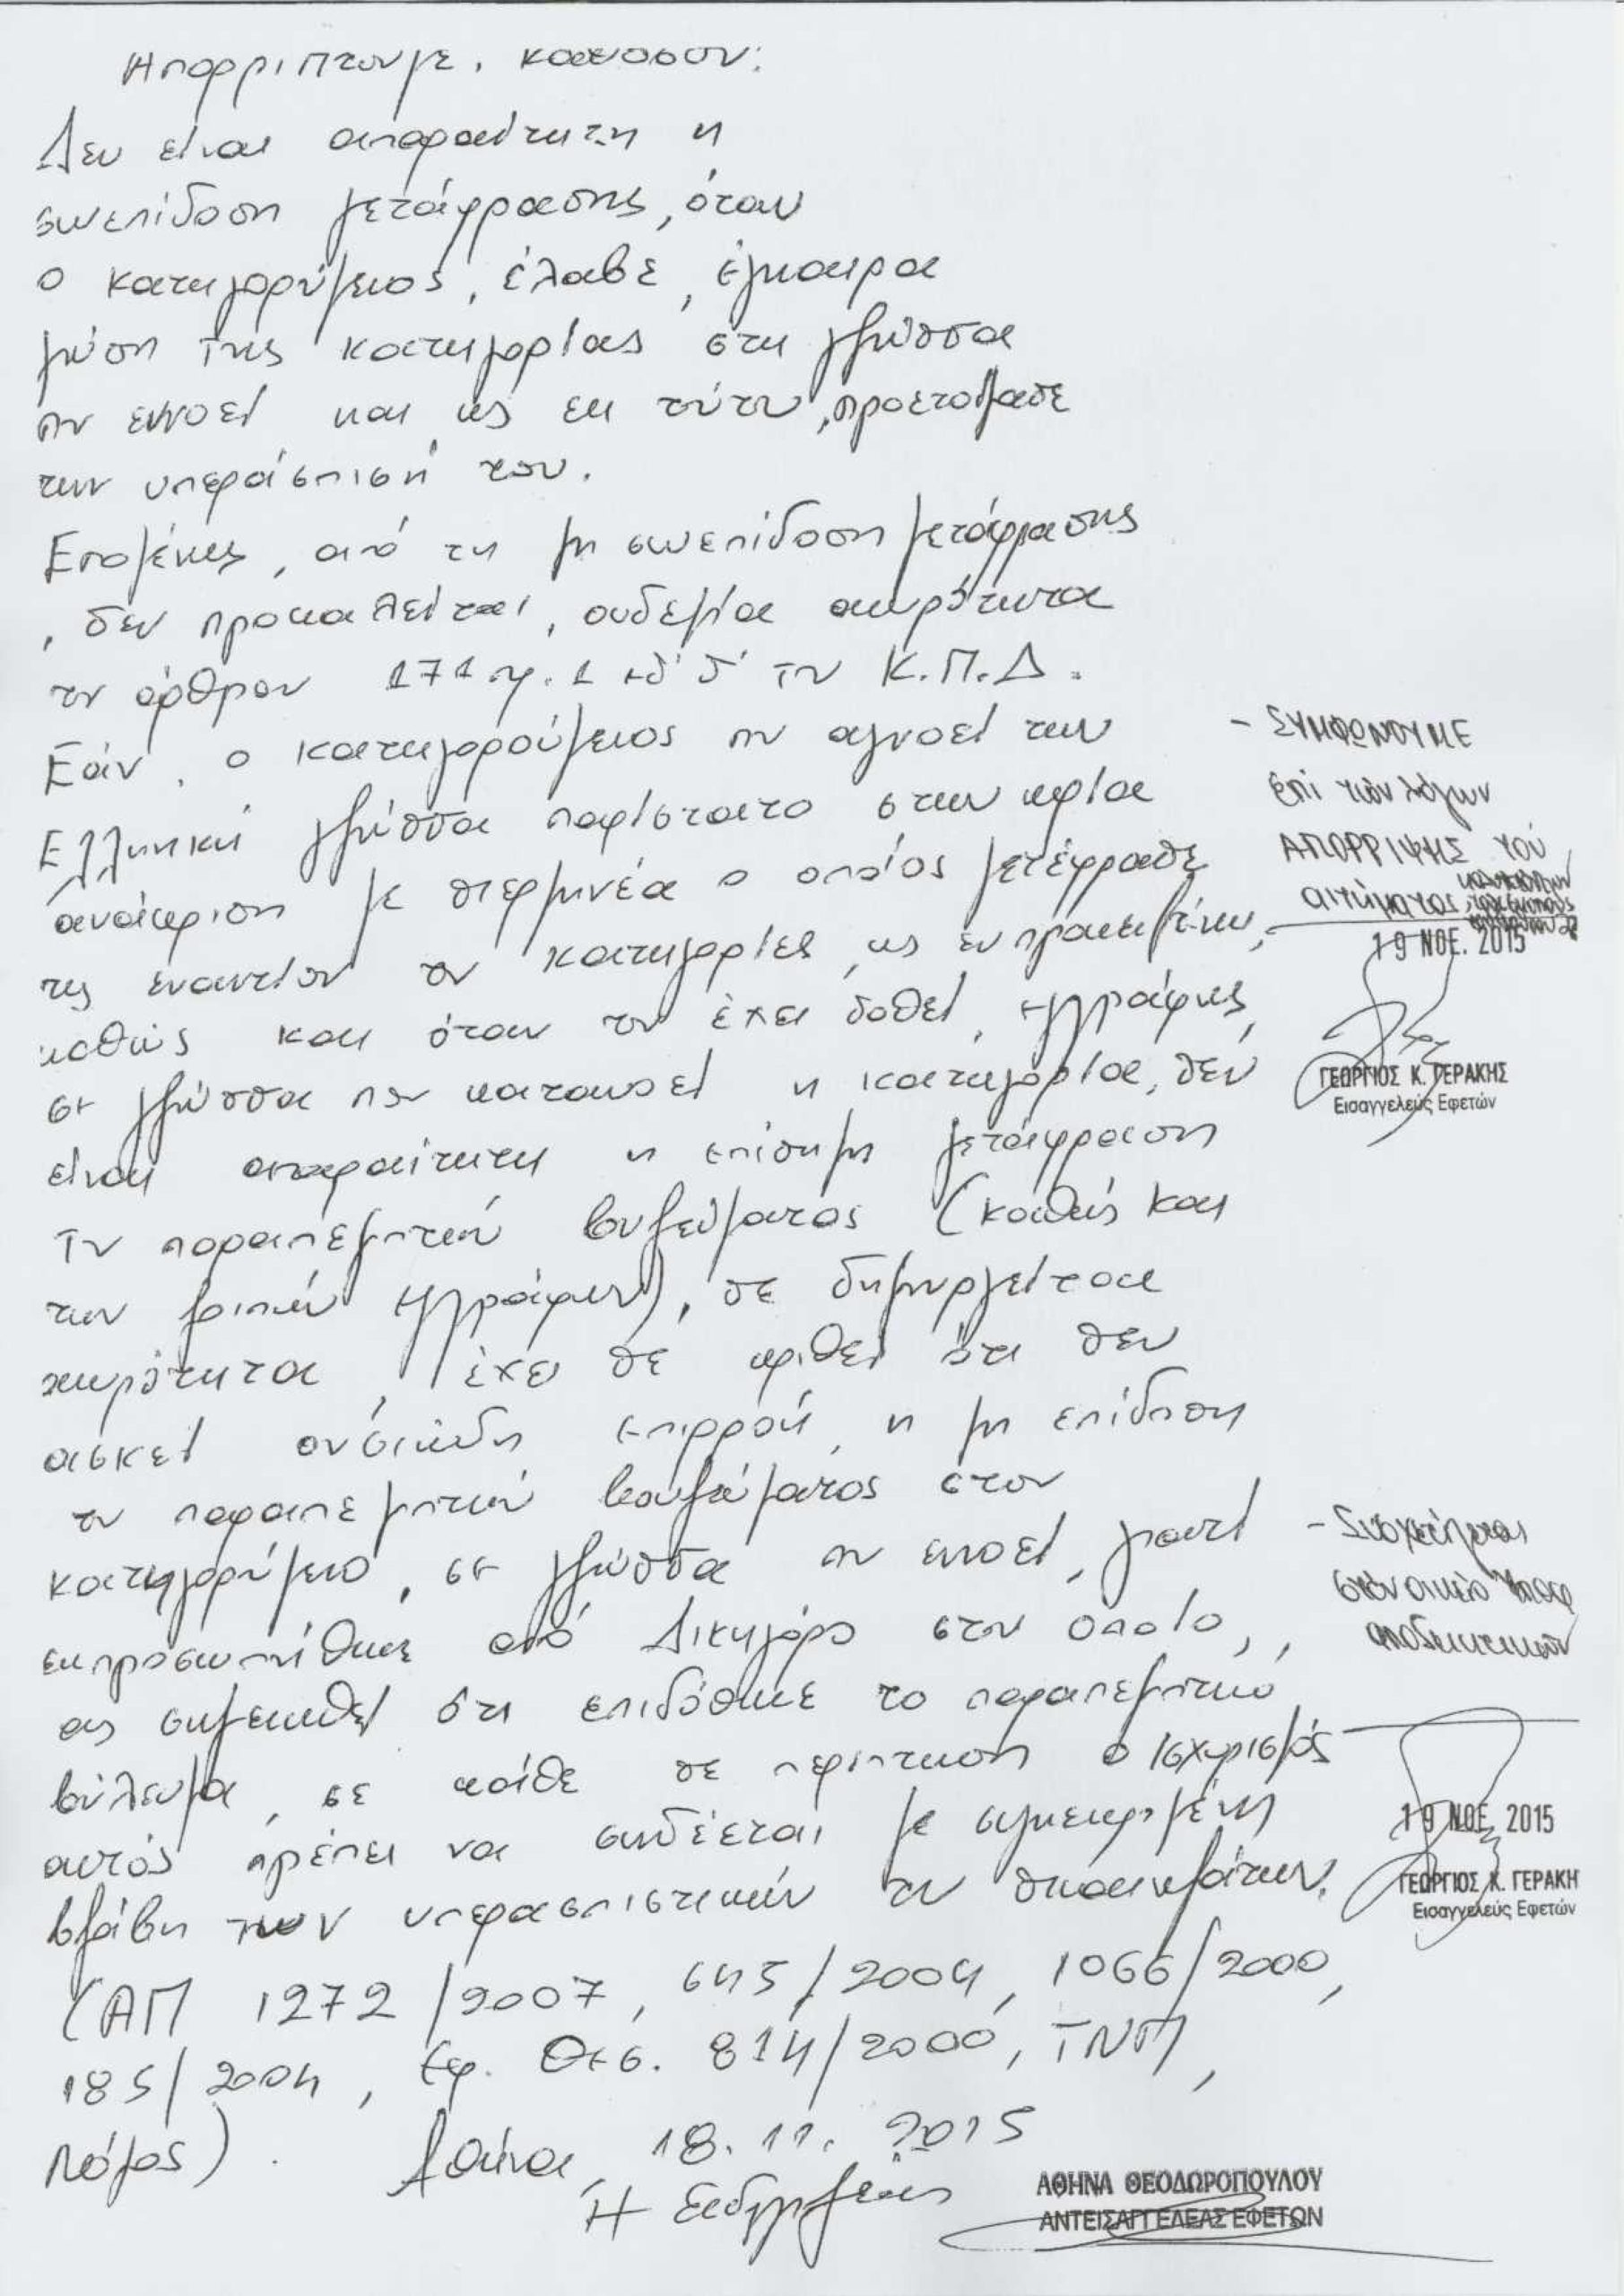 Απορρίπτουμε, καθόσον:
Δεν είναι απαραίτητη η
συνεπίδοση μετάφρασης, όταν
ο κατηγορούμενος, έλαβε, έγκαιρα
γνώση της κατηγορίας στη γλώσσα
που εννοεί και, ως εκ τούτου, προετοίμασε
την υπεράσπισή του.
Επομένως, από τη μη συνεπίδοση μετάφρασης
, δεν προκαλείται, ουδεμία ακυρότητα
του άρθρου 171 παρ. 1 εδ' δ' του Κ.Π.Δ.
Εάν, ο κατηγορούμενος που αγνοεί την
Ελληνική γλώσσα παρίστατο στην κυρία
ανάκριση με διερμηνέα ο οποίος μετέφρασε
τις εναντίον του κατηγορίες, ως εν προκειμένω,
καθώς και όταν του έχει δοθεί, εγγράφως,
σε γλώσσα που κατανοεί η κατηγορία, δεν
είναι απαραίτητη η επίσημη μετάφραση
του παραπεμπτικού βουλεύματος (καθώς και
των λοιπών εγγράφων), δε δημιουργείται
ακυρότητα, έχει δε κριθεί ότι δεν
ασκεί ουσιώδη επιρροή, η μη επίδοση
του παραπεμπτικού βουλεύματος στον
κατηγορούμενο, σε γλώσσα που εννοεί, γιατί
εκπροσωπήθηκε από Δικηγόρο στον οποίο,
ας σημειωθεί ότι επιδόθηκε το παραπεμπτικό
βούλευμα, σε κάθε δε περίπτωση ο ισχυρισμός
αυτός πρέπει να συνδέεται με συγκεκριμένη
βλάβη των υπερασπιστικών του δικαιωμάτων.
(ΑΠ 1272/2007, 645/2004, 1066/2000,
185/2004, Εφ. Θεσ. 814/2000, ΤΝΠ,
Νόμος). Αθήνα, 18.11.2015
Η Εισαγγελεύς
ΑΘΗΝΑ ΘΕΟΔΩΡΟΠΟΥΛΟΥ
ΑΝΤΕΙΣΑΓΓΕΛΕΑΣ ΕΦΕΤΩΝ
- ΣΥΜΦΩΝΟΥΜΕ
επί των λόγων
ΑΠΟΡΡΙΨΗΣ του
αιτήματος
19 ΝΟΕ. 2015
ΓΕΩΡΓΙΟΣ Κ. ΓΕΡΑΚΗΣ
Εισαγγελεύς Εφετών
- Συσχετίζεται
στον οικείο
αποδεικτικών
19 ΝΟΕ. 2015
ΓΕΩΡΓΙΟΣ Κ. ΓΕΡΑΚΗ
Εισαγγελεύς Εφετών